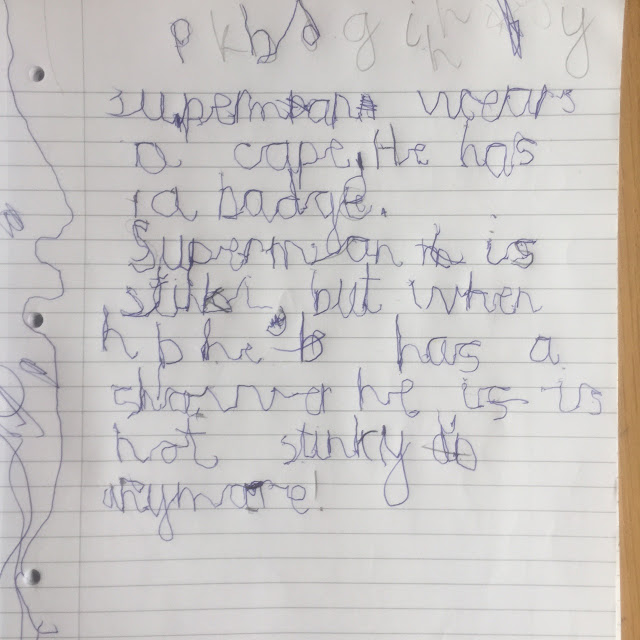 p k b d g i h y
Superman wears
a cape. He has
a badge.
Superman is
stinki but when
h b he b has a
shower he is is
not stinky
anymore.